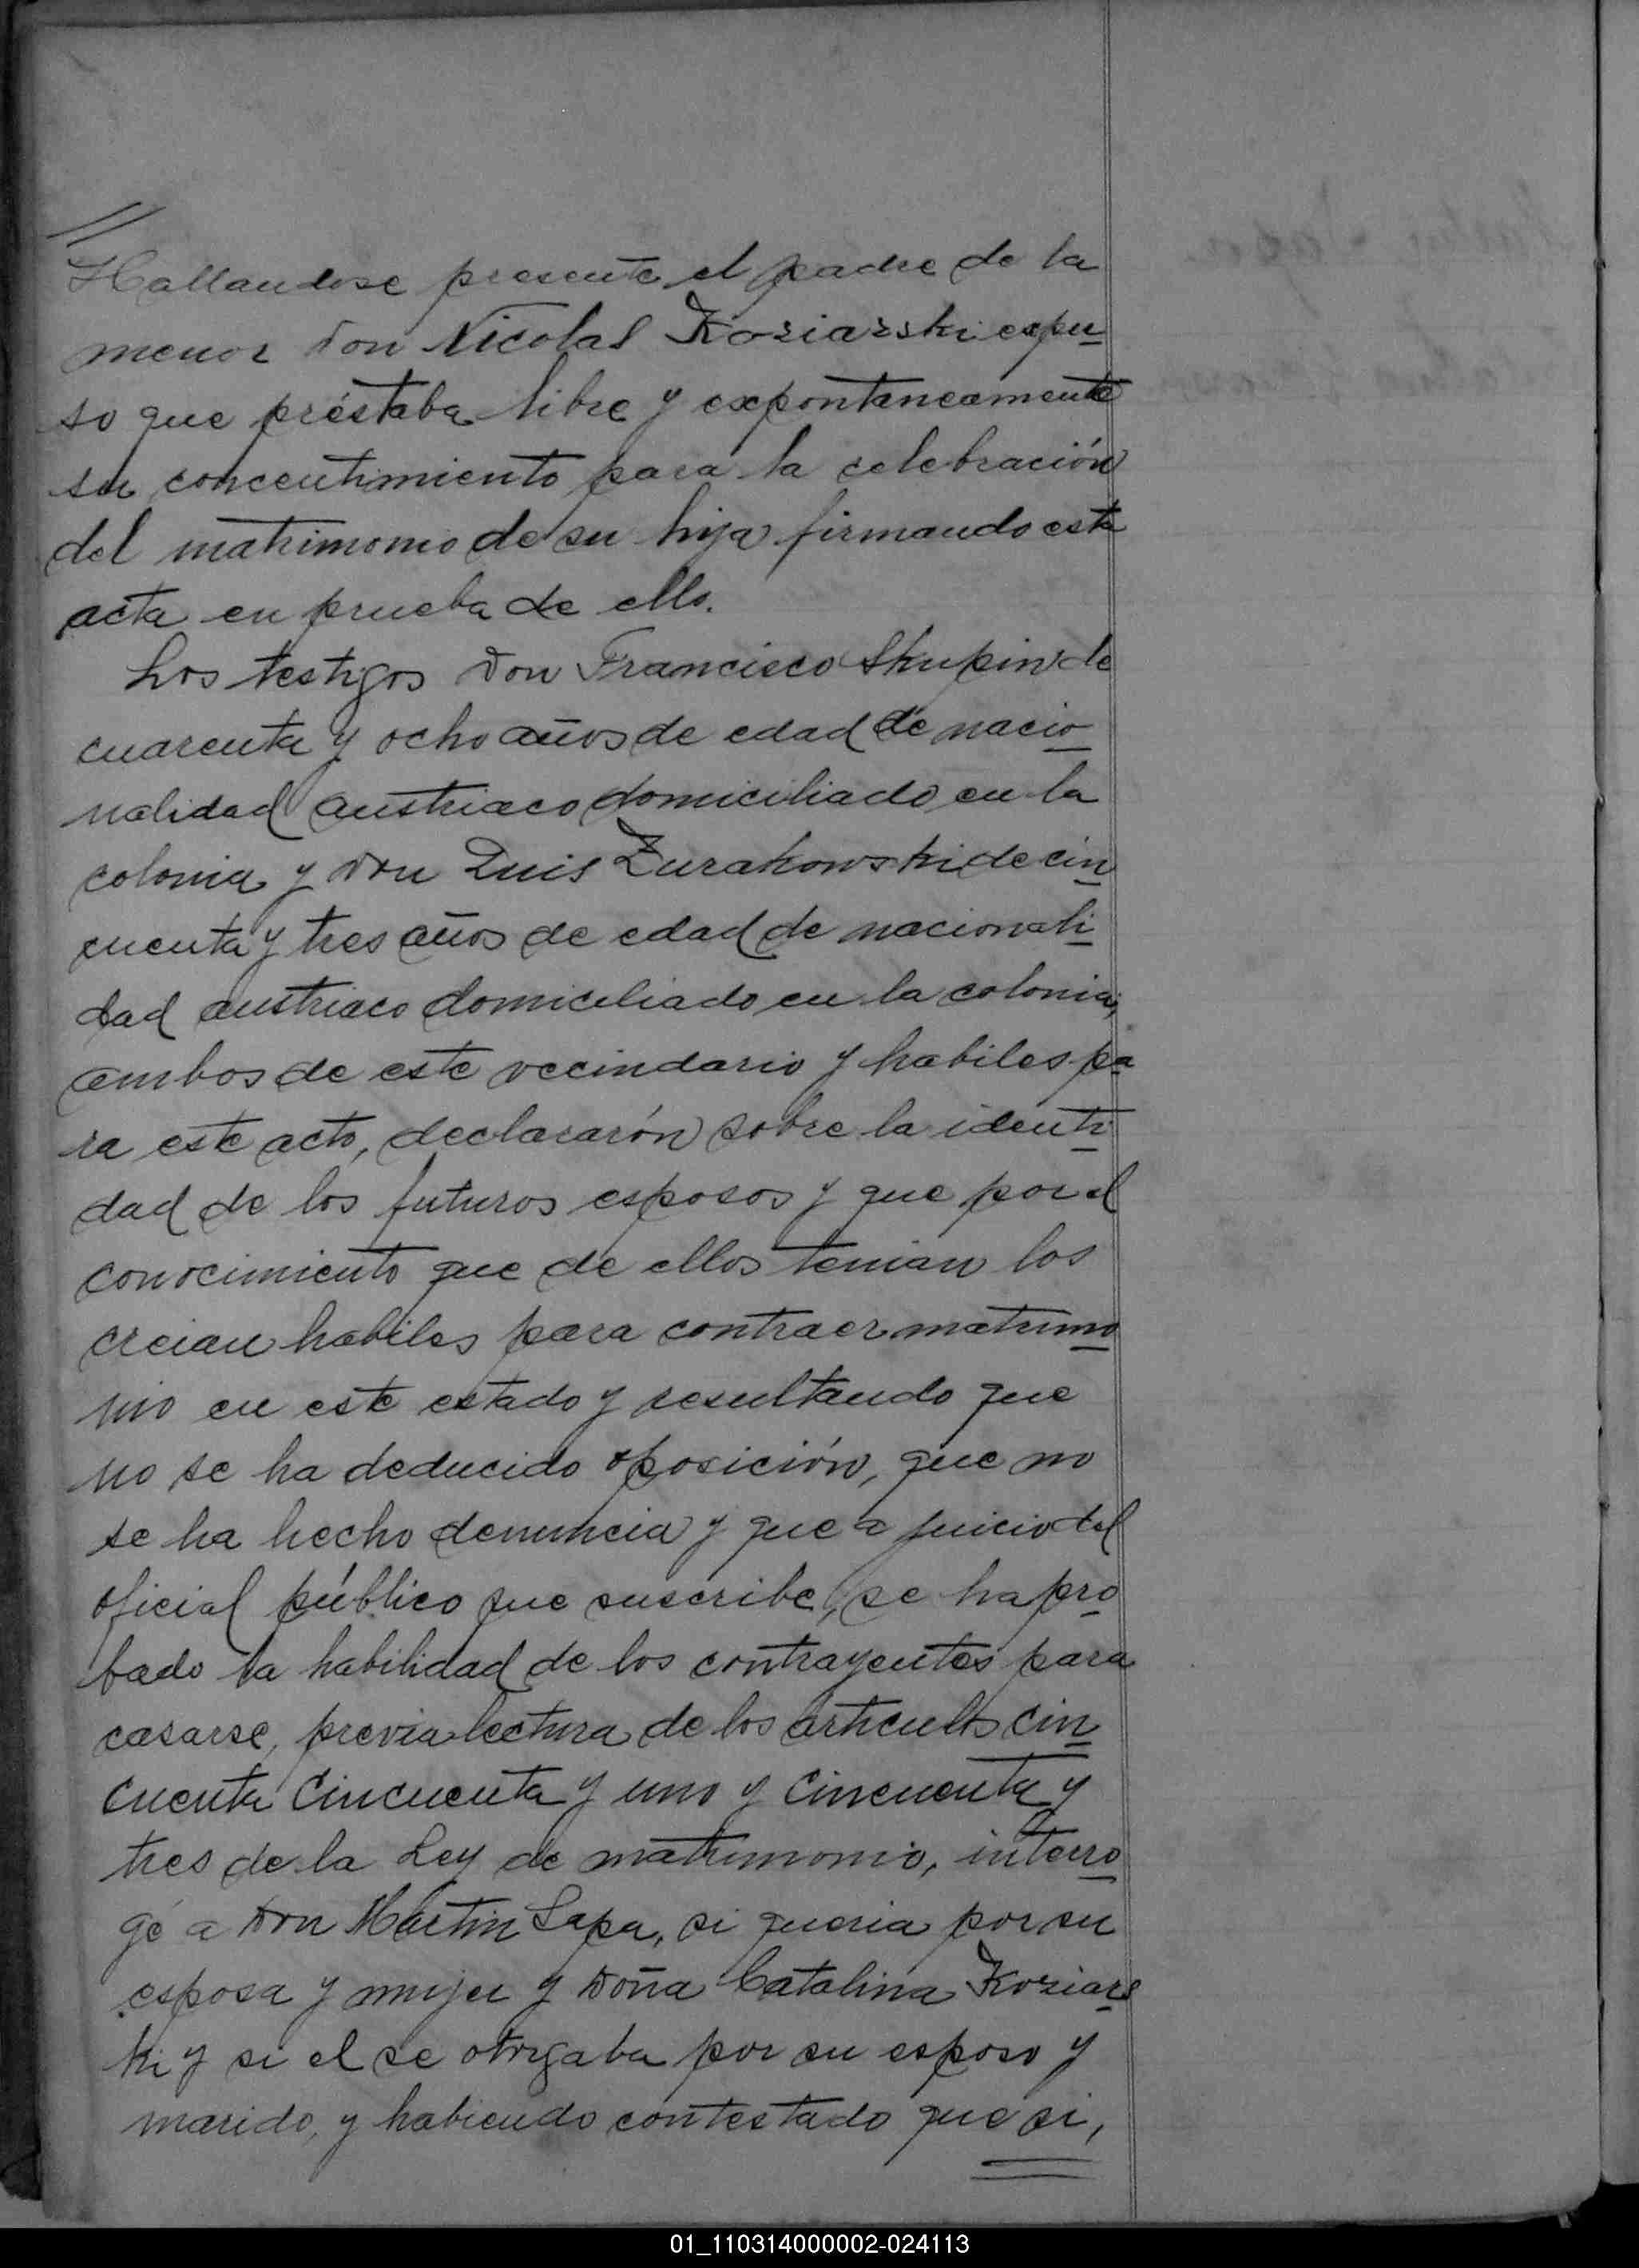 Hallandose presente el padre de la
menor Don Nicolas Koziarski expu
so que préstaba libre y expontaneamente
su concentimiento para la celebración
del matrimonio de su hija firmando esta
acta en prueba de ello.
Los testigos Don Francisco Skupin de
cuarenta y ocho años de edad de nacio
nalidad austriaco domiciliado en la
colonia y Don Luis Zurakowski de cin
cuenta y tres años de edad de nacionali
dad austriaco domiciliado en la colonia,
ambos de este vecindario y habiles pa
ra este acto, declararón sobre la identi
dad de los futuros esposos y que por el
conocimiento que de ellos tenian los
creian habiles para contraer matrimo
nio en este estado y resultando que
no se ha deducido oposición, que no
se ha hecho denuncia y que a juicio del
oficial público que suscribe, se ha pro
bado la habilidad de los contrayentes para
casarse, previa lectura de los articulos cin
cuenta cincuenta y uno y cincuenta y
tres de la Ley de matrimonio, interro
gé a Don Martin Lapa, si queria por su
esposa y mujer y Doña Catalina Koziars
ki y si el se otorgaba por su esposo y
marido, y habiendo contestado que si,
01_110314000002-024113